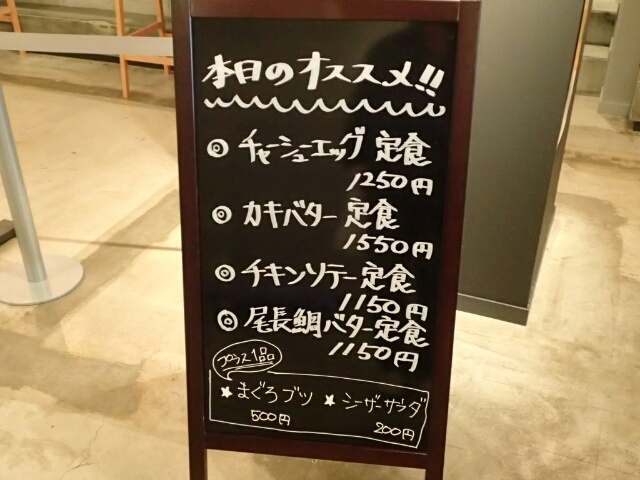 本日のオススメ!!
◎ チャーシューエッグ 定食
1250円
◎ カキバター 定食
1550円
◎ チキンソテー定食
1150円
◎ 尾長鯛バター定食
1150円
プラス1品
★ まぐろブツ ★ シーザーサラダ
500円 200円